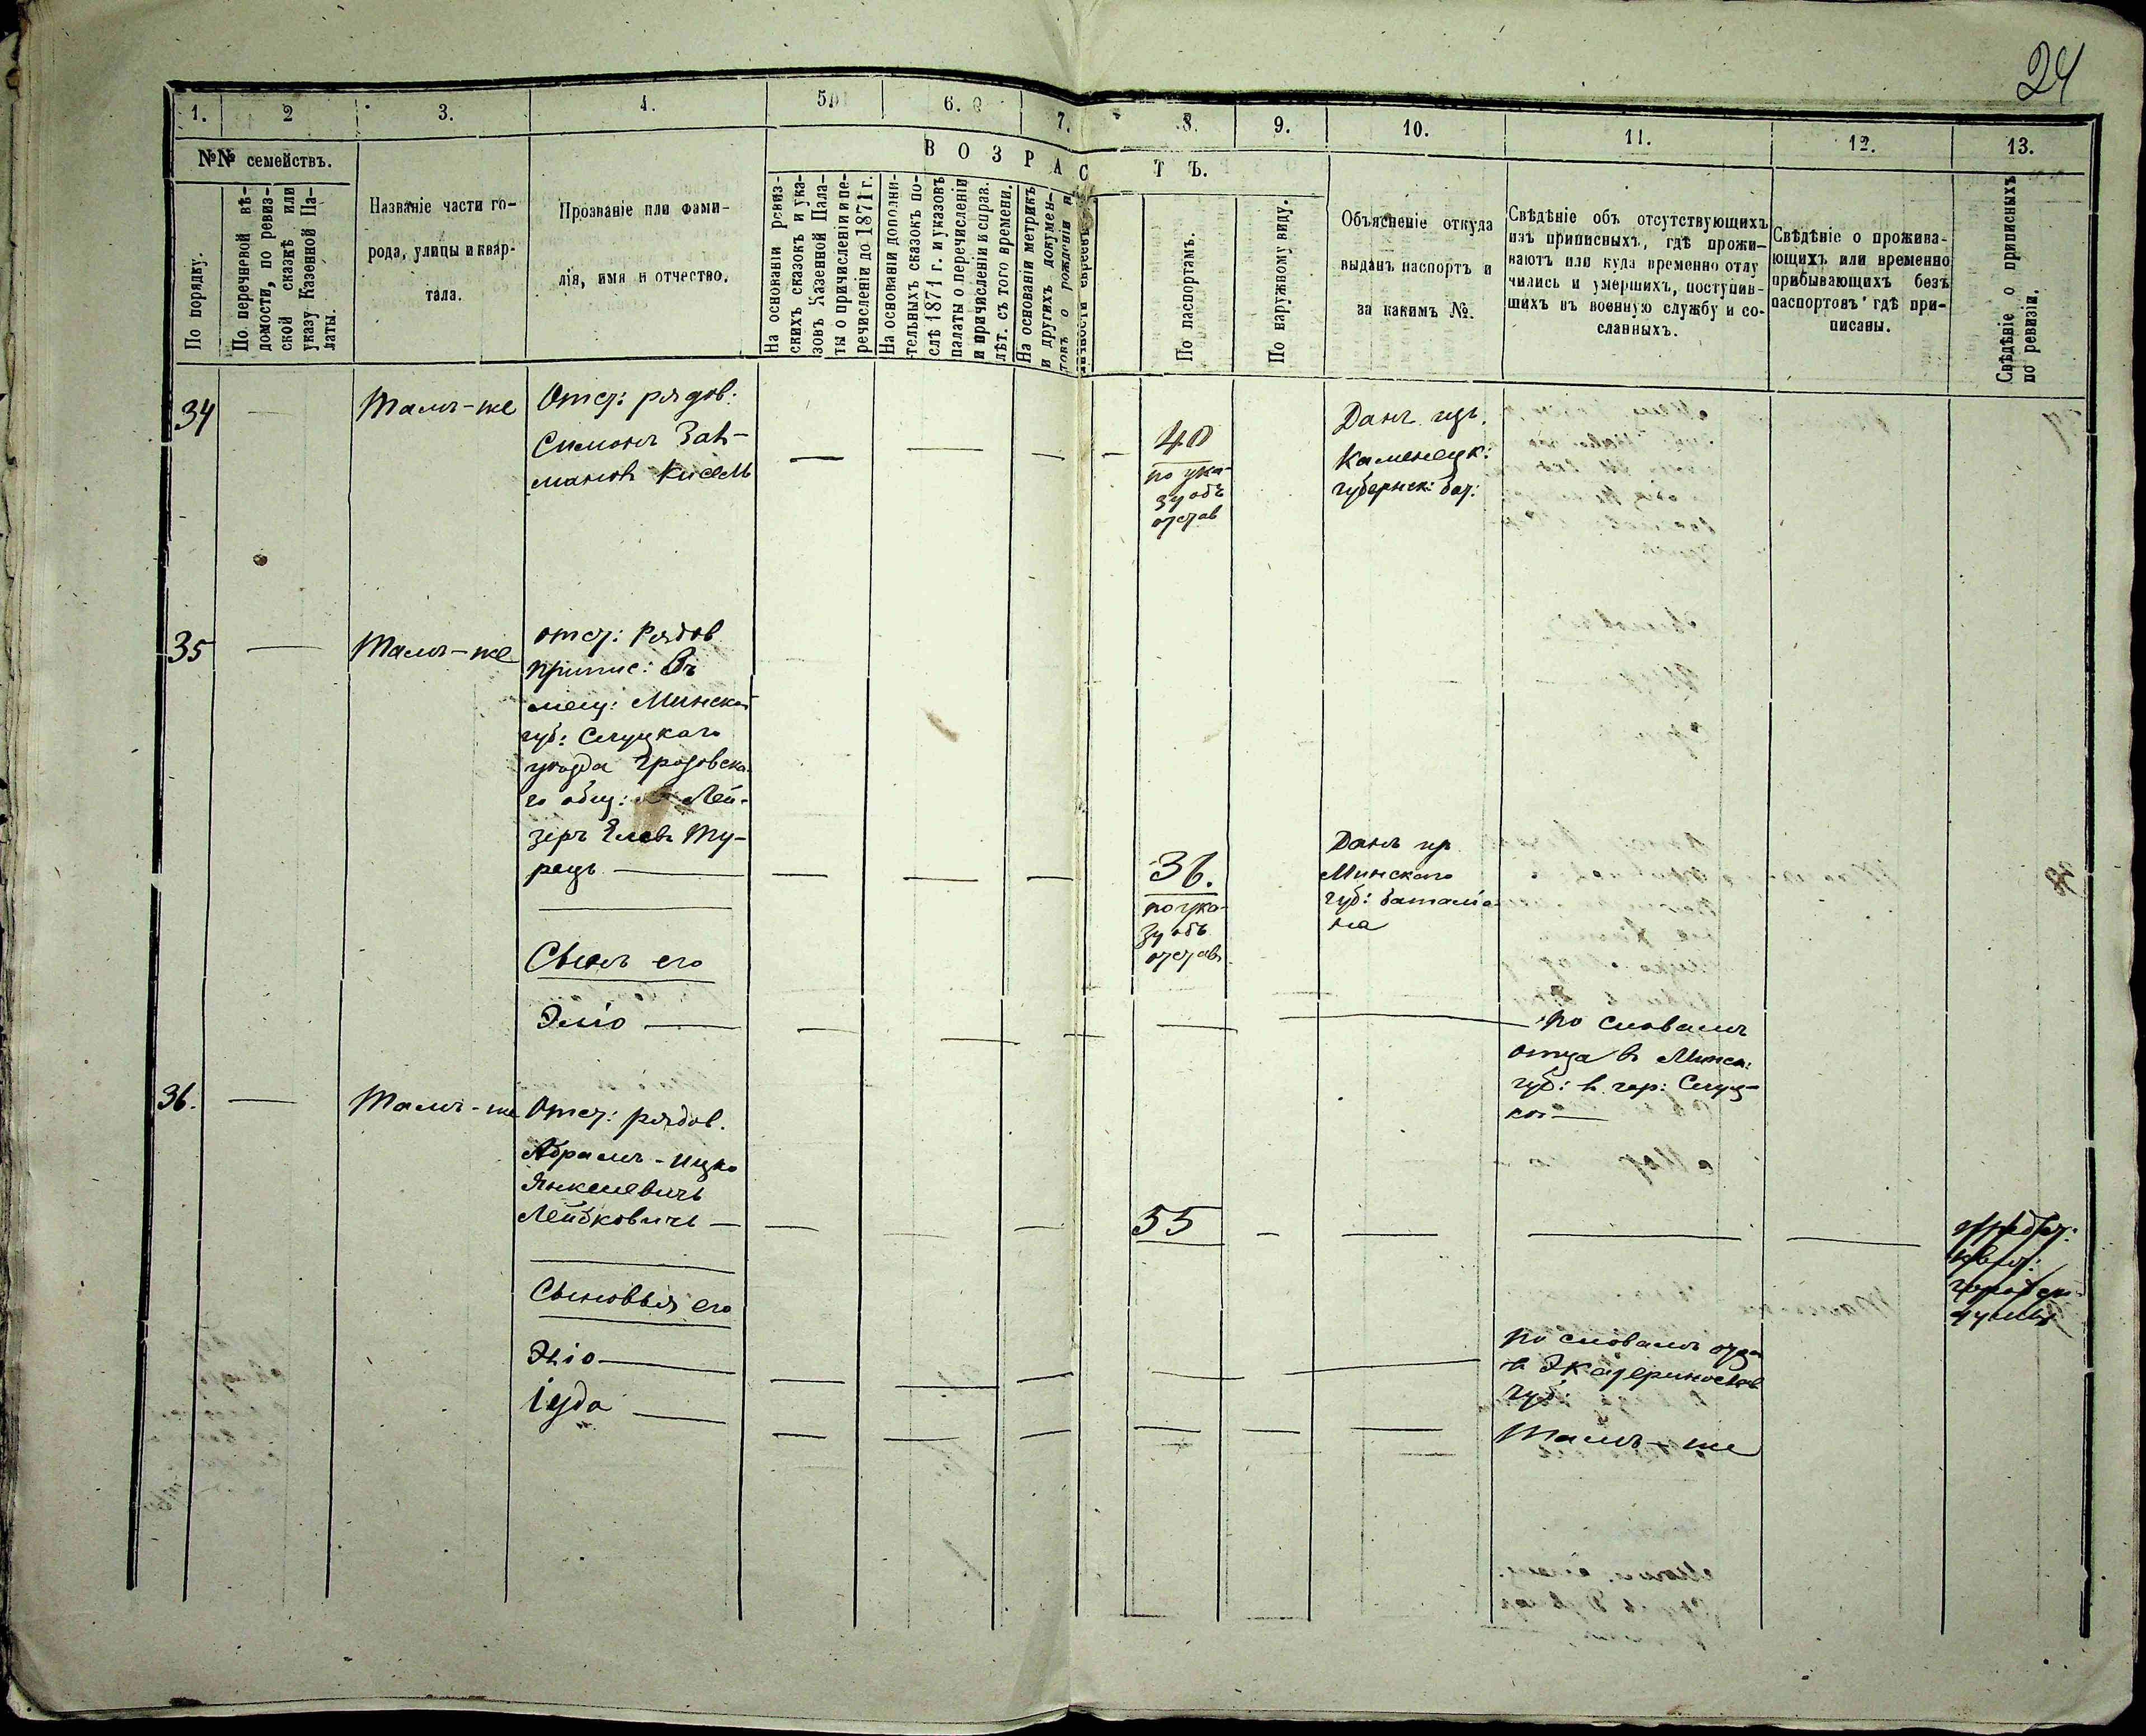 24
1.
2
3.
4.
5.
6.
7.
8.
9.
10.
11.
12.
13.
№№ семействъ.
По порядку.
По перечневой вѣ-
домости, по ревиз-
ской сказкѣ или
указу Казенной Па-
латы.
Названіе части го-
рода, улицы и квар-
тала.
Прозваніе или фами-
лія, имя и отчество.
ВОЗРАСТЪ.
На основаніи ревиз-
скихъ сказокъ и ука-
зовъ Казенной Пала-
ты о причисленіи и пе-
речисленіи до 1871 г.
На основаніи дополни-
тельныхъ сказокъ по-
слѣ 1871 г. и указовъ
палаты о перечисленіи
и причисленіи и справ.
лѣт. съ того времени.
На основаніи метрикъ
и другихъ докумен-
товъ о рожденіи и
По паспортамъ.
По наружному виду.
Объясненіе откуда
выданъ паспортъ и
за какимъ №.
Свѣдѣніе объ отсутствующихъ
изъ приписныхъ, гдѣ прожи-
ваютъ или куда временно отлу
чились и умершихъ, поступив-
шихъ въ военную службу и со-
сланныхъ.
Свѣдѣніе о прожива-
ющихъ или временно
прибывающихъ безъ
паспортовъ гдѣ при-
писаны.
Свѣдѣніе о приписныхъ
по ревизіи.
34 — Тамъ-же
Отст: рядов:
Симонъ
Кисель
40
по ука-
зу объ
отстав
Данъ изъ
Каменецк:
губернск: бат:
35 — Тамъ-же
отст: Рядов
припис: въ
мещ: Минской
губ: Слуцкаго
уѣзда Грозовска-
го общ: Лей-
зеръ Елевъ Ту-
рецъ —
36.
по ука-
зу объ
отстав
Данъ из
Минскаго
губ: баталіо
на
Сынъ его
Эліо —
по словамъ
отца в Минск:
губ: в гор: Слуц-
кѣ —
36. — Тамъ-же
Отст: рядов.
Абрамъ-Ицко
Янкелевичъ
Лейбковичъ —
55
Сыновья его
Эліо —
по словамъ отца
в Экатеринослав
губ:
Іуда —
Тамъ-же